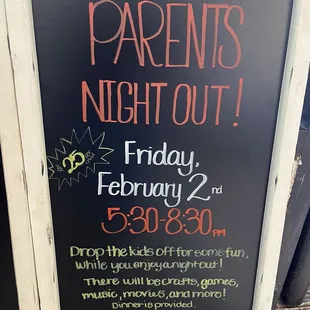 PARENTS
NIGHT OUT!
$25
Friday,
February 2nd
5:30-8:30 PM
Drop the kids off for some fun,
while you enjoy a night out!
There will be crafts, games,
music, movies, and more!
Dinner is provided.